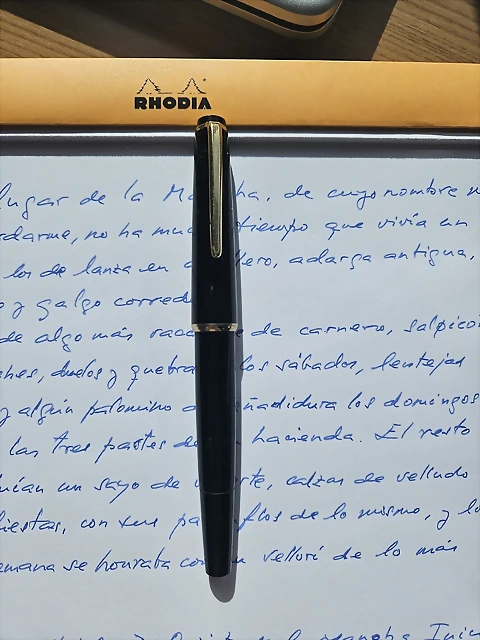 RHODIA
lugar de la M ha, de cuyo nombre n
rdarme, no ha muc tiempo que vivía un
los de lanza en a llero, adarga antigua,
o y galgo corred
de algo más vaca de carnero, salpicó
ches, duelos y quebra los sábados, lentejas
y algún palomino d añadidura los domingos
las tres partes de hacienda. El resto
nían un sayo de rte, calzas de velludo
fiestas, con sus pa flos de lo mismo, y lo
emana se honraba con vellorí de lo más